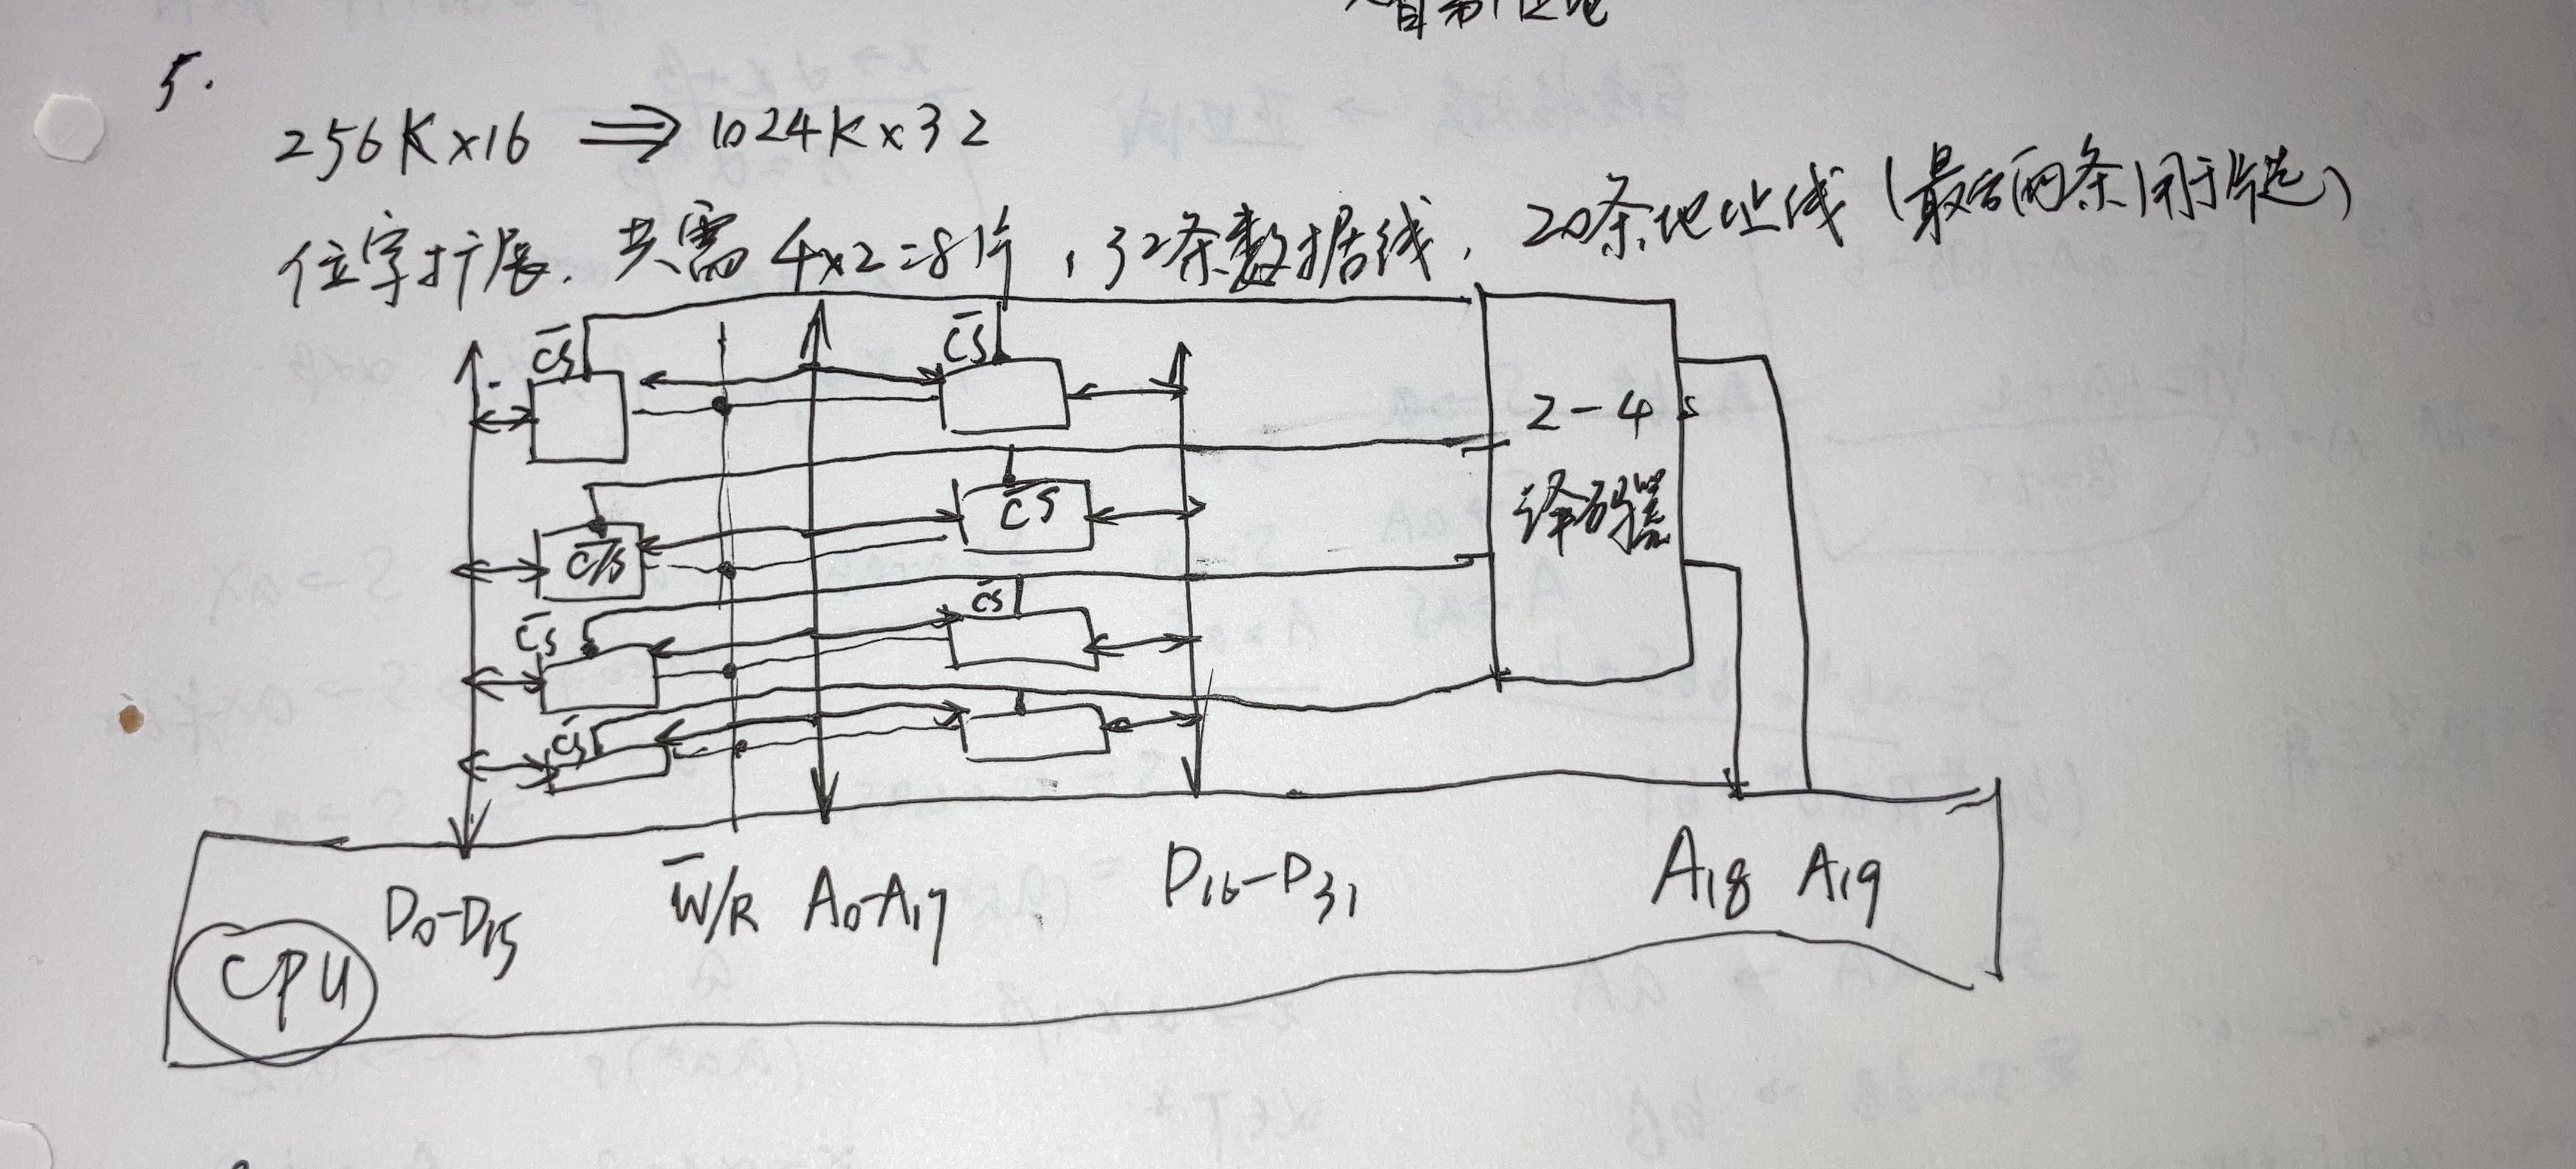 5.
256K×16 ⟹ 1024K×32
位字扩展. 共需 4×2=8片, 32条数据线, 20条地址线 (最后两条用于片选)
C̅S̅ C̅S̅
2-4
译码器
C̅S̅ C̅S̅
C̅S̅ C̅S̅
C̅S̅
D0-D15 W̅/R A0-A17 D16-D31 A18 A19
CPU